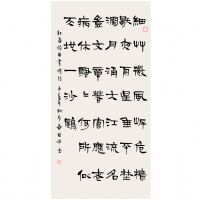 細艸微風岸危檣
獨夜舟星垂平野
闊月涌大江流名
豈文章著官應老
病休飄飄何所似
天地一沙鷗
杜甫旅夜書懷